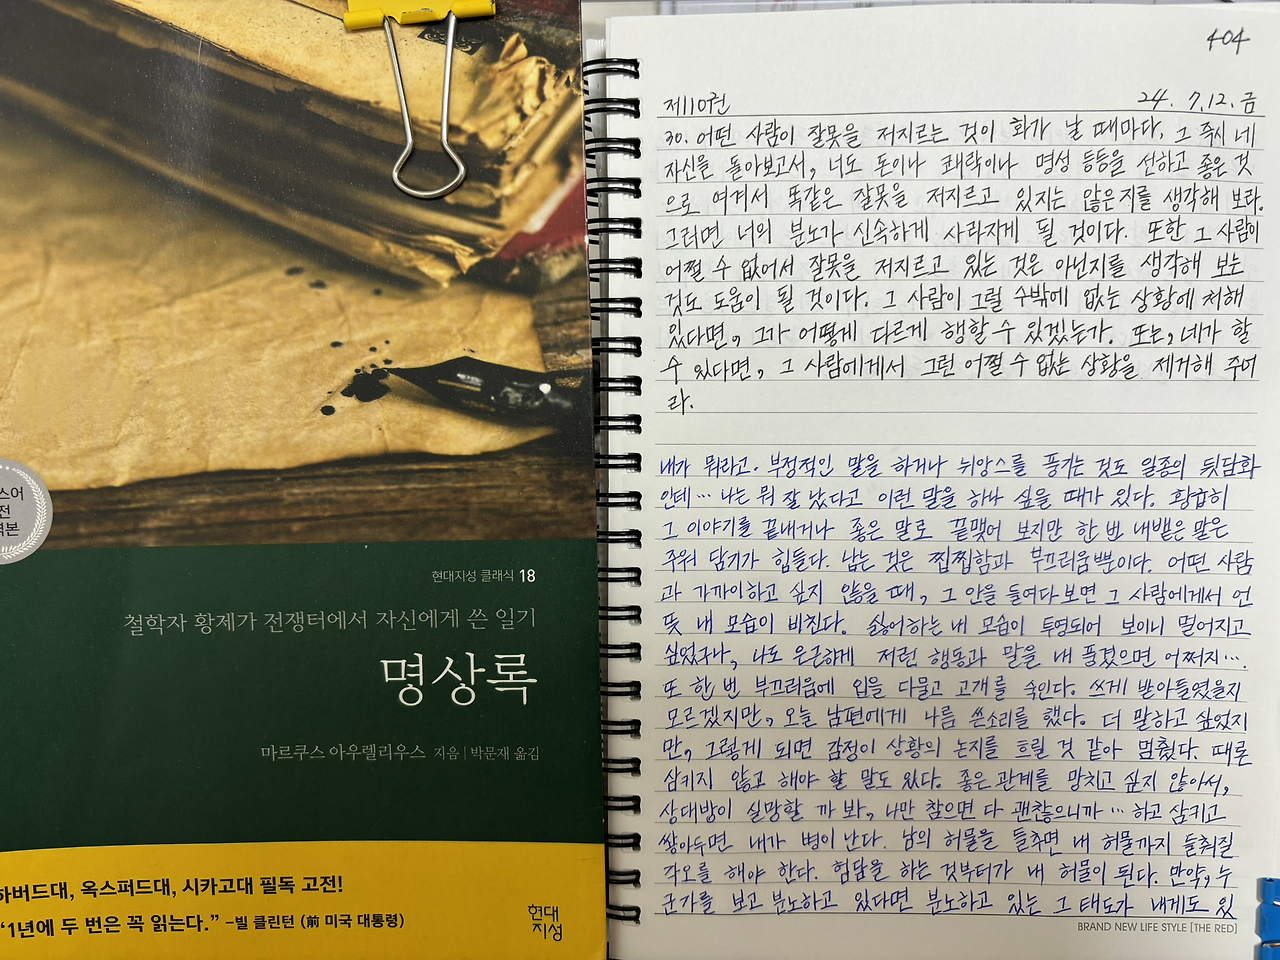 스어
전
역본
현대지성 클래식 18
철학자 황제가 전쟁터에서 자신에게 쓴 일기
명상록
마르쿠스 아우렐리우스 지음 | 박문재 옮김
하버드대, 옥스퍼드대, 시카고대 필독 고전!
“1년에 두 번은 꼭 읽는다.” –빌 클린턴 (前 미국 대통령)
현대
지성
404
제10권
24. 7.12. 금
30. 어떤 사람이 잘못을 저지르는 것이 화가 날 때마다, 그 즉시 네
자신을 돌아보고서, 너도 돈이나 쾌락이나 명성 등등을 선하고 좋은 것
으로 여겨서 똑같은 잘못을 저지르고 있지는 않은지를 생각해 보라.
그러면 너의 분노가 신속하게 사라지게 될 것이다. 또한 그 사람이
어쩔 수 없어서 잘못을 저지르고 있는 것은 아닌지를 생각해 보는
것도 도움이 될 것이다. 그 사람이 그럴 수밖에 없는 상황에 처해
있다면, 그가 어떻게 다르게 행할 수 있겠는가. 또는, 네가 할
수 있다면, 그 사람에게서 그런 어쩔 수 없는 상황을 제거해 주어
라.
내가 뭐라고. 부정적인 말을 하거나 뉘앙스를 풍기는 것도 일종의 뒷담화
인데… 나는 뭐 잘 났다고 이런 말을 하나 싶을 때가 있다. 황급히
그 이야기를 끝내거나 좋은 말로 끝맺어 보지만 한 번 내뱉은 말은
주워 담기가 힘들다. 남는 것은 찝찝함과 부끄러움뿐이다. 어떤 사람
과 가까이하고 싶지 않을 때, 그 안을 들여다보면 그 사람에게서 언
뜻 내 모습이 비친다. 싫어하는 내 모습이 투영되어 보이니 멀어지고
싶었구나, 나도 은근하게 저런 행동과 말을 내 풍겼으면 어쩌지….
또 한 번 부끄러움에 입을 다물고 고개를 숙인다. 쓰게 받아들였을지
모르겠지만, 오늘 남편에게 나름 쓴소리를 했다. 더 말하고 싶었지
만, 그렇게 되면 감정이 상황의 논지를 흐릴 것 같아 멈췄다. 때론
삼키지 않고 해야 할 말도 있다. 좋은 관계를 망치고 싶지 않아서,
상대방이 실망할 까 봐, 나만 참으면 다 괜찮으니까… 하고 삼키고
쌓아두면 내가 병이 난다. 남의 허물을 들추면 내 허물까지 들춰질
각오를 해야 한다. 험담을 하는 것부터가 내 허물이 된다. 만약, 누
군가를 보고 분노하고 있다면 분노하고 있는 그 태도가 내게도 있
BRAND NEW LIFE STYLE [THE RED]